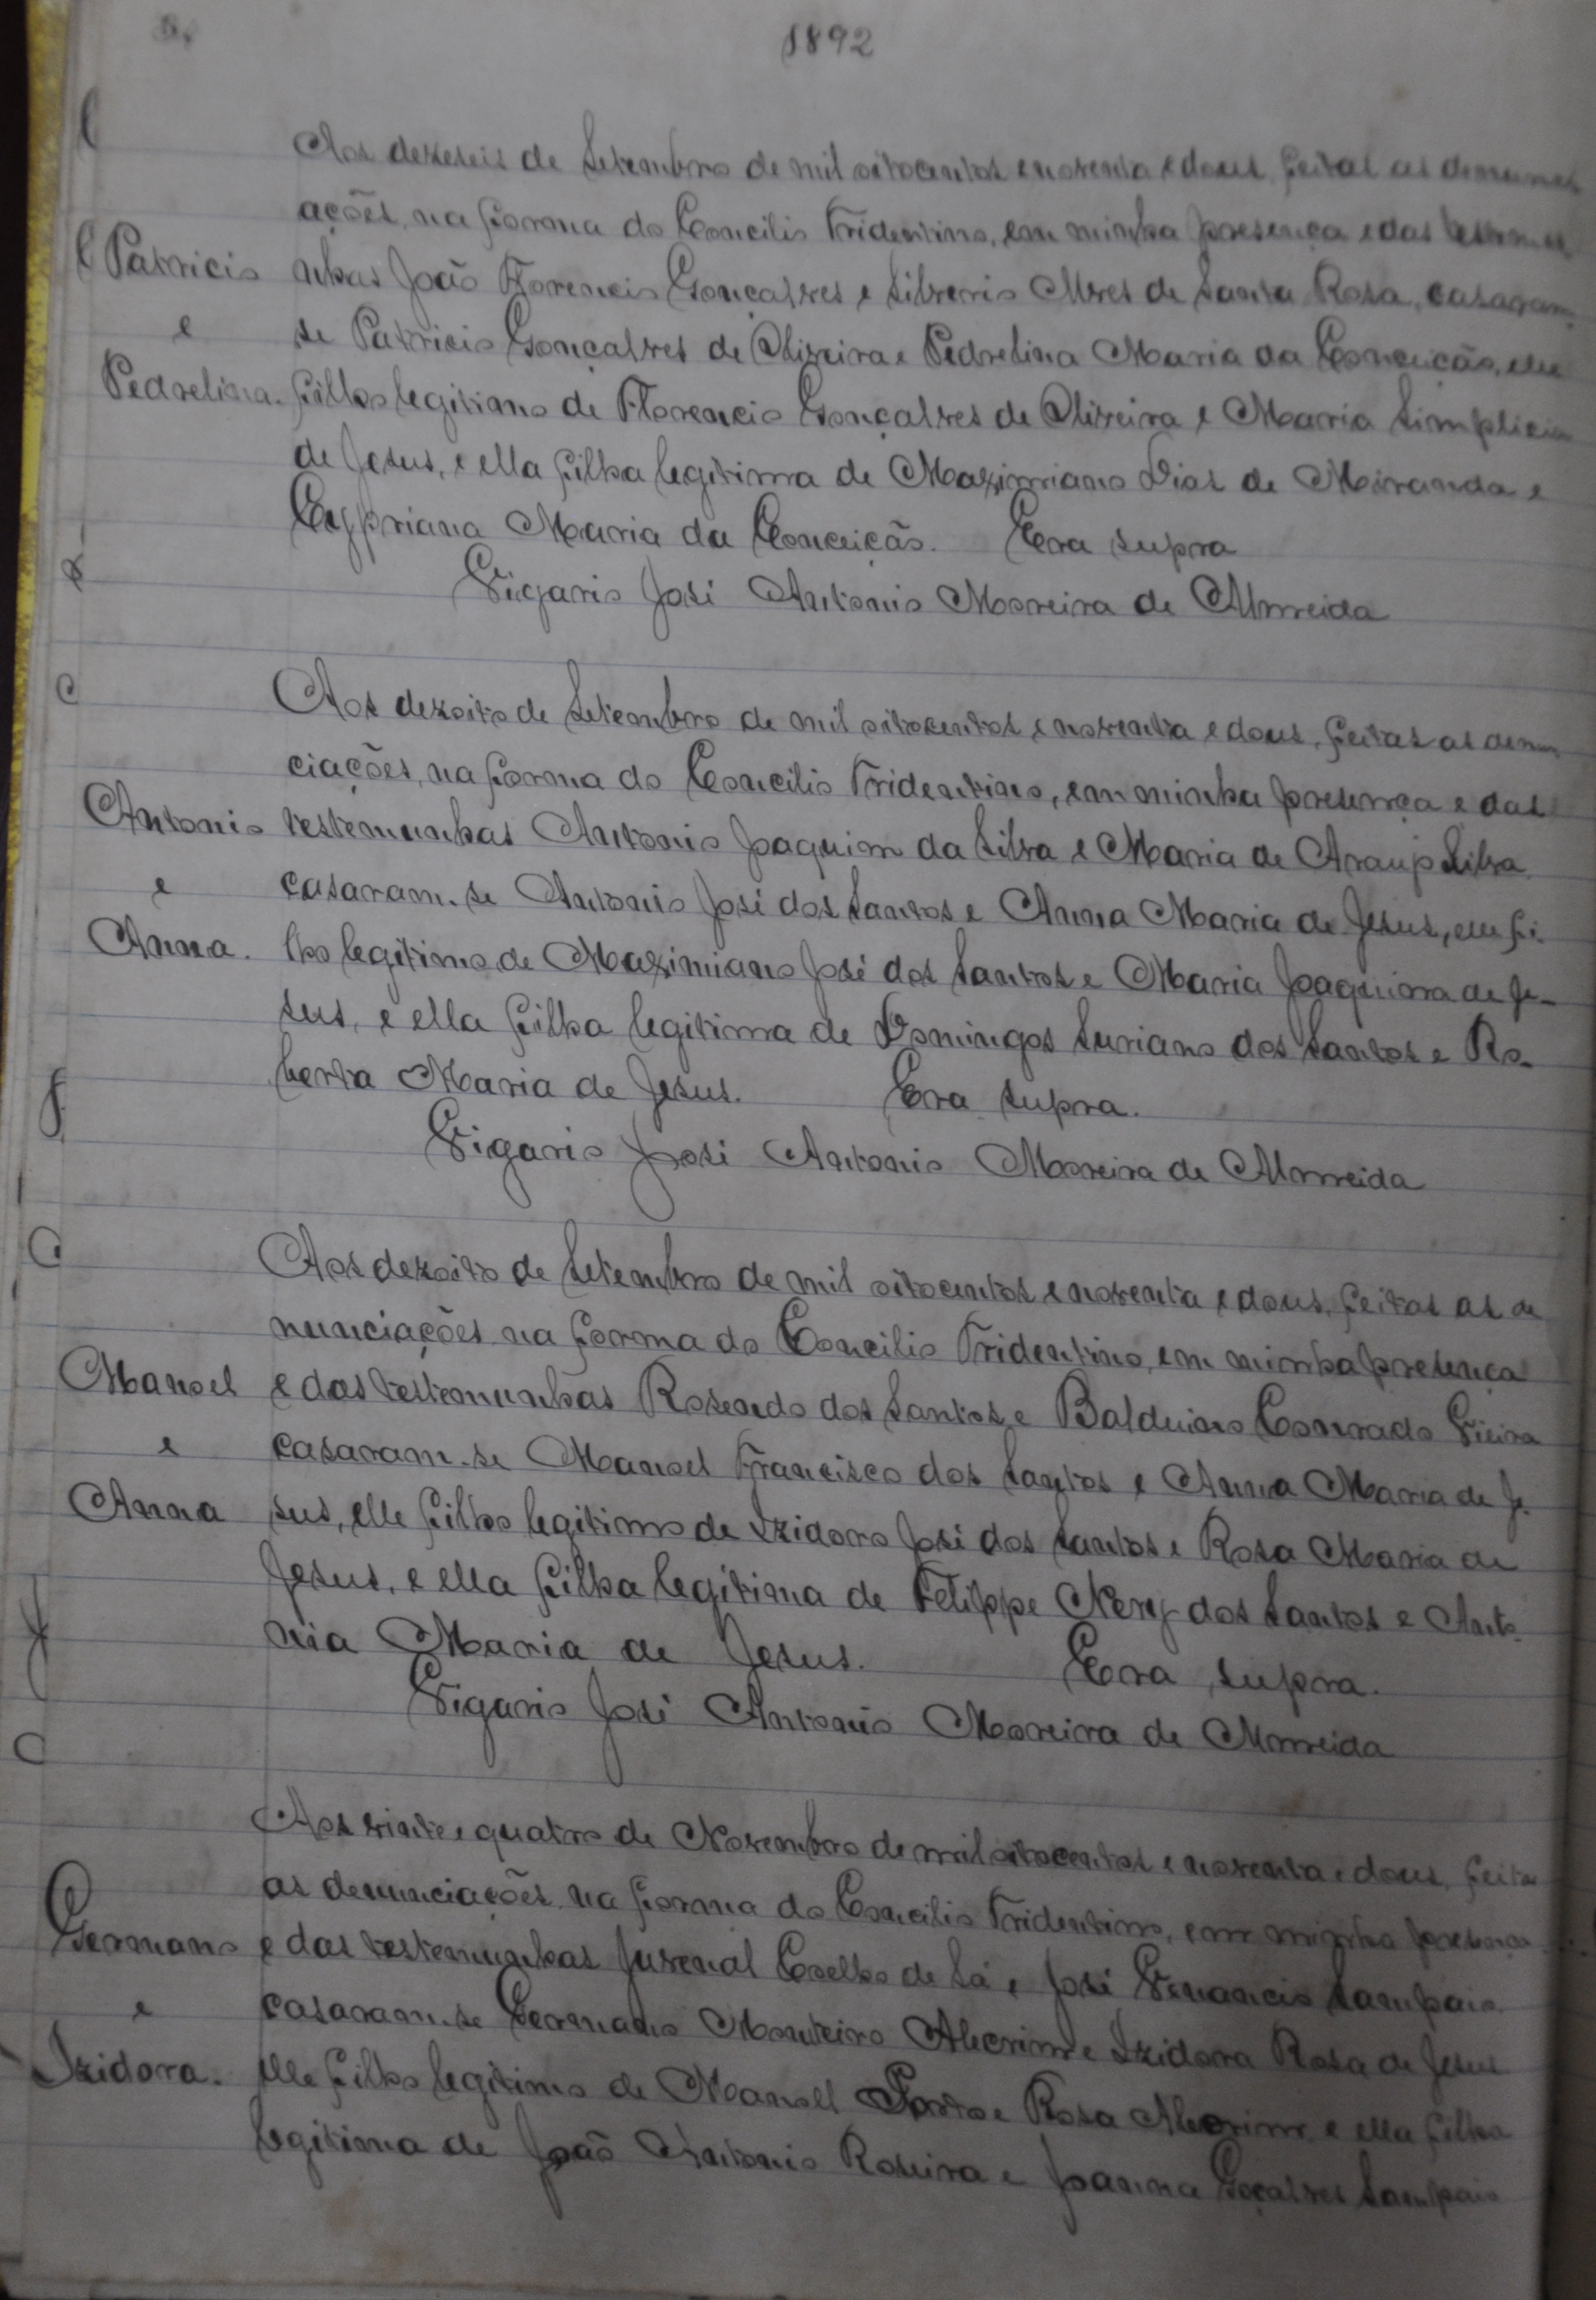 1892
Aos dezeseis de Setembro de mil oitocentos e noventa e dous, feitas as denunci
ações, na forma do Concilio Tridentino, em minha presença e das testemu
Patricio
nhas João Florencio Gonçalves e Silverio Alves de Santa Rosa, casaram
e
se Patricio Gonçalves de Oliveira e Pedrelina Maria da Conceição, elle
Pedrelina.
filho legitimo de Florencio Gonçalves de Oliveira e Maria Simplicia
de Jesus, e ella filha legitima de Maximiano Dias de Miranda e
Cypriana Maria da Conceição. Era supra
Vigario José Antonio Moreira de Almeida
Aos dezoito de Setembro de mil oitocentos e noventa e dous, feitas as denun
ciações, na forma do Concilio Tridentino, em minha presença e das
Antonio
testemunhas Antonio Joaquim da Silva e Maria de Araujo Silva
e
casaram-se Antonio José dos Santos e Anna Maria de Jesus, elle fi-
Anna.
lho legitimo de Maximiano José dos Santos e Maria Joaquina de Je-
sus, e ella filha legitima de Domingos Suriano dos Santos e Ro-
berta Maria de Jesus. Era supra.
Vigario José Antonio Moreira de Almeida
Aos dezoito de Setembro de mil oitocentos e noventa e dous, feitas as de
nunciações na forma do Concilio Tridentino, em minha presença
Manoel
e das testemunhas Rosendo dos Santos e Balduino Conrado Vieira
e
casaram-se Manoel Francisco dos Santos e Anna Maria de Je-
Anna
sus, elle filho legitimo de Izidoro José dos Santos e Rosa Maria de
Jesus, e ella filha legitima de Felippe Nery dos Santos e Anto-
nia Maria de Jesus. Era supra.
Vigario José Antonio Moreira de Almeida
Aos vinte e quatro de Novembro de mil oitocentos e noventa e dous, feitas
as denunciações, na forma do Concilio Tridentino, em minha presença
Germano
e das testemunhas Juvenal Coelho de Sá e José Venancio Sampaio
e
casaram-se Germano Monteiro Alecrim e Izidora Rosa de Jesus
Izidora.
elle filho legitimo de Manoel Porto e Rosa Alecrim, e ella filha
legitima de João Antonio Roseira e Joanna Goçalves Sampaio